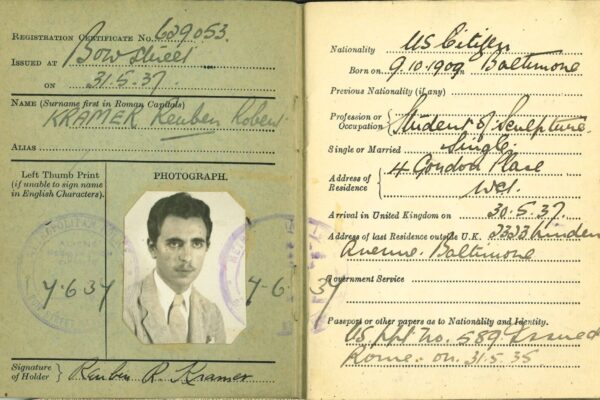 REGISTRATION CERTIFICATE No. 639053.
ISSUED AT Bow Street
ON 31.5.37.
NAME (Surname first in Roman Capitals)
KRAMER Reuben Robert
ALIAS
Left Thumb Print
(if unable to sign name
in English Characters).
PHOTOGRAPH.
7.6.37
7.6.37
Signature
of Holder } Reuben R. Kramer
Nationality US Citizen
Born on 9.10.1909 in Baltimore
Previous Nationality (if any)
Profession or
Occupation { Student of Sculpture.
Single or Married Single.
Address of
Residence { 4 Gordon Place
WC1.
Arrival in United Kingdom on 30.5.37.
Address of last Residence outside U.K. 2333 Linden
Avenue. Baltimore
Government Service
Passport or other papers as to Nationality and Identity.
US ppt no. 589 Issued
Rome. on. 31.5.35